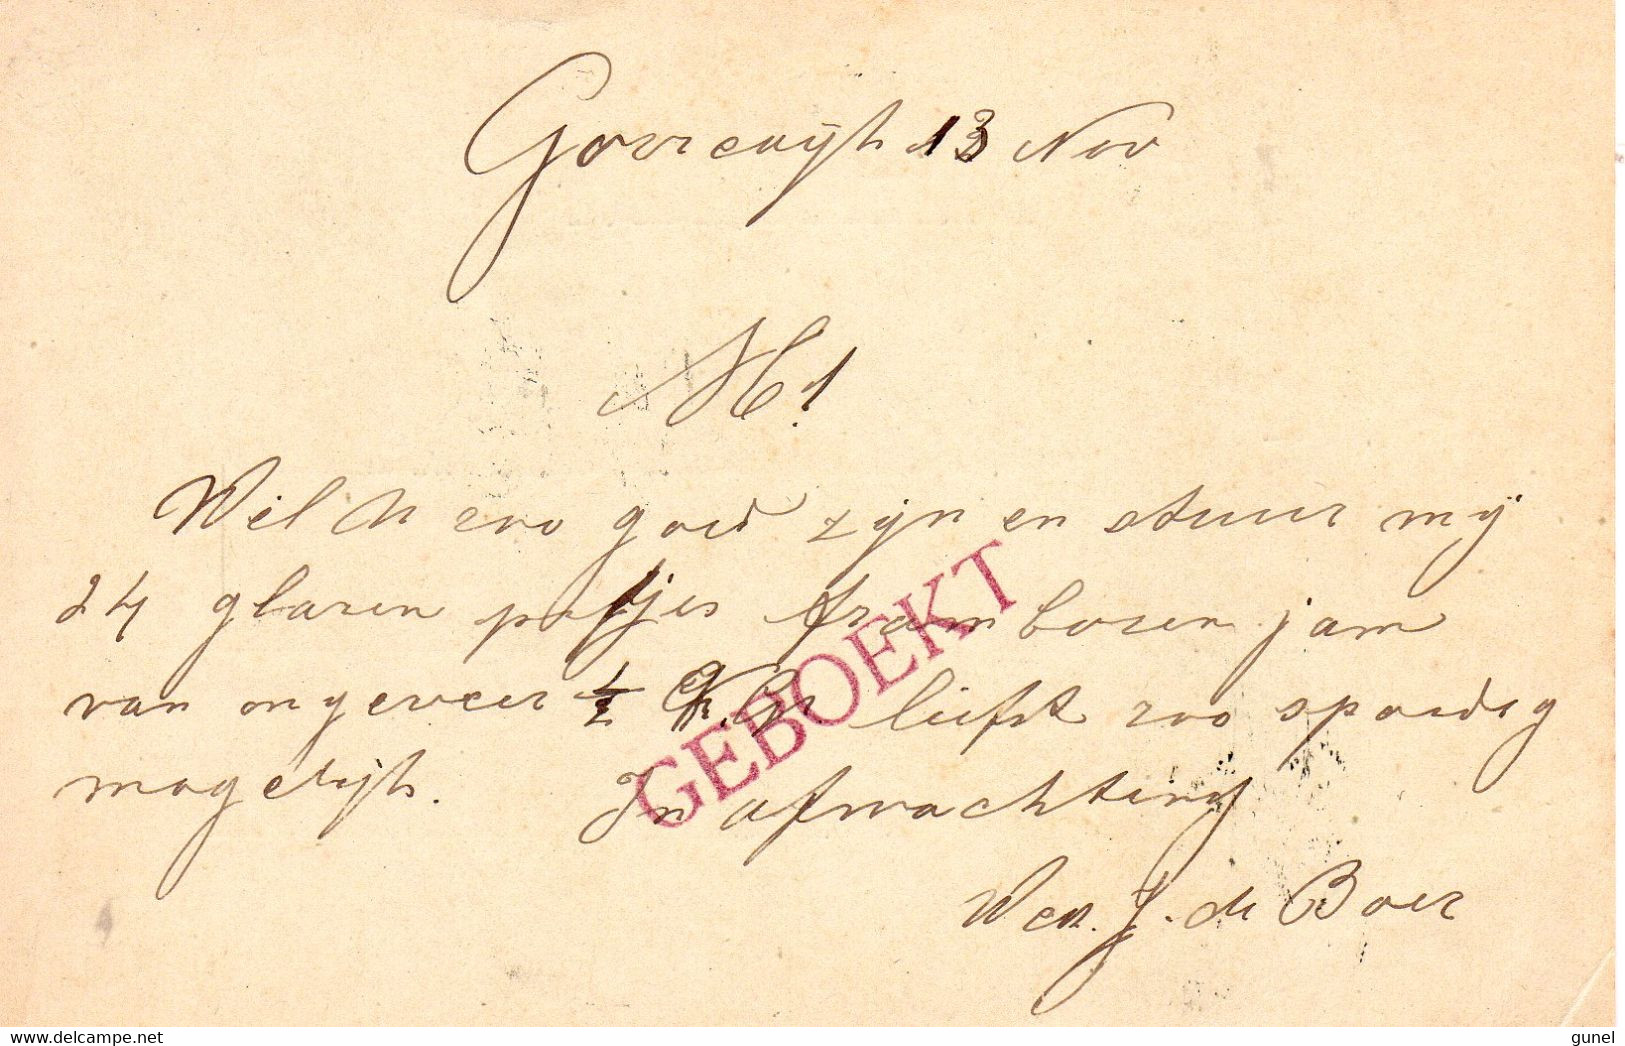 Gorredijk 13 Nov
M!
Wil U evo goed zijn en stuur mij
24 glazen potjes frambozen jam
van ongeveer ½ K.G. liefst zoo spoedig
mogelijk. In afwachting
Wed. J. de Boer
GEBOEKT
www.delcampe.net
gunel